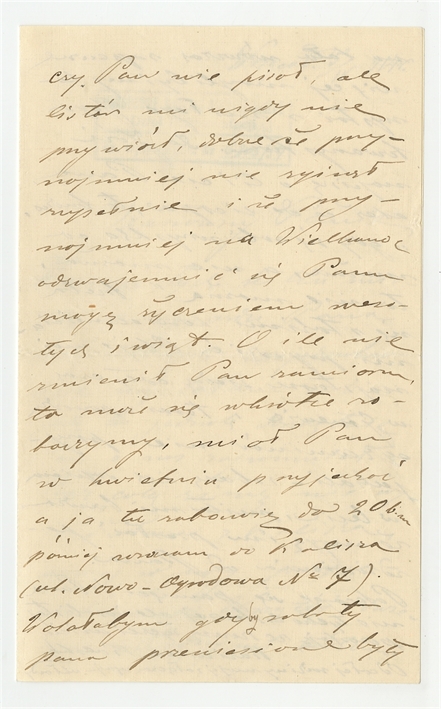 czy Pan nie pisał, ale
listów mi nigdy nie
przywiózł, dobrze że przy-
najmniej nie zginął
zupełnie i że przy-
najmniej na Wielkanoc
odwzajemnić się Panu
mogę życzeniem weso-
łych świąt. O ile nie
zmienił Pan zamiaru,
to może się wkrótce zo-
baczymy, miał Pan
w kwietniu przyjechać
a ja tu zabawię do 20 b.m
później wracam do Kalisza
(ul. Nowo-Ogrodowa № 7).
Wolałabym gdyby roboty
pana przeniesione były